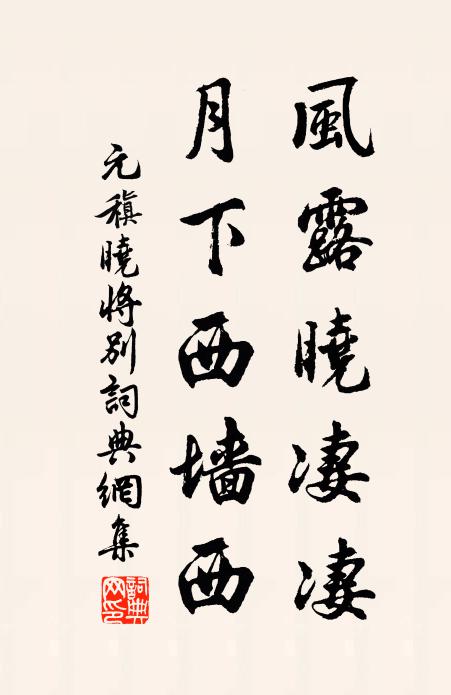 風露曉凄凄
月下西墻西
元稹曉將別詞典網集
詞典网印